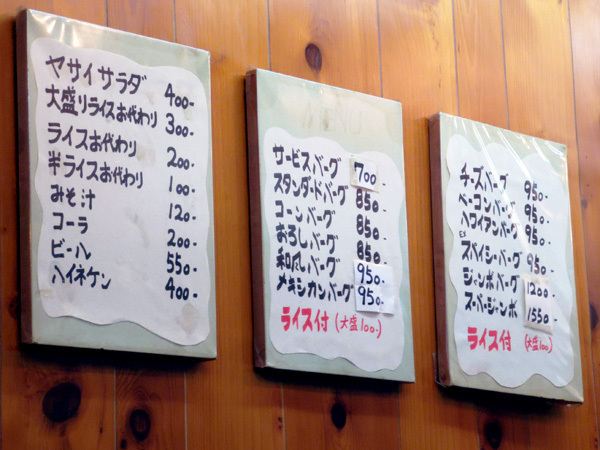 ヤサイサラダ 400-
大盛りライスお代わり 300-
ライスお代わり 200-
半ライスお代わり 100-
みそ汁 120-
コーラ 200-
ビール 550-
ハイネケン 400-
MENU
サービスバーグ 700-
スタンダードバーグ 850-
コーンバーグ 850-
おろしバーグ 850-
和風バーグ 950-
メキシカンバーグ 950-
ライス付 (大盛100-)
チーズバーグ 950-
ベーコンバーグ 950-
ハワイアンバーグ 950-
スパイシーバーグ 950-
ジャンボバーグ 1200-
スーパージャンボ 1550-
ライス付 (大盛100)